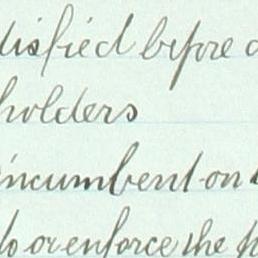 tisfied before
holders
incumbent on
to or enforce the